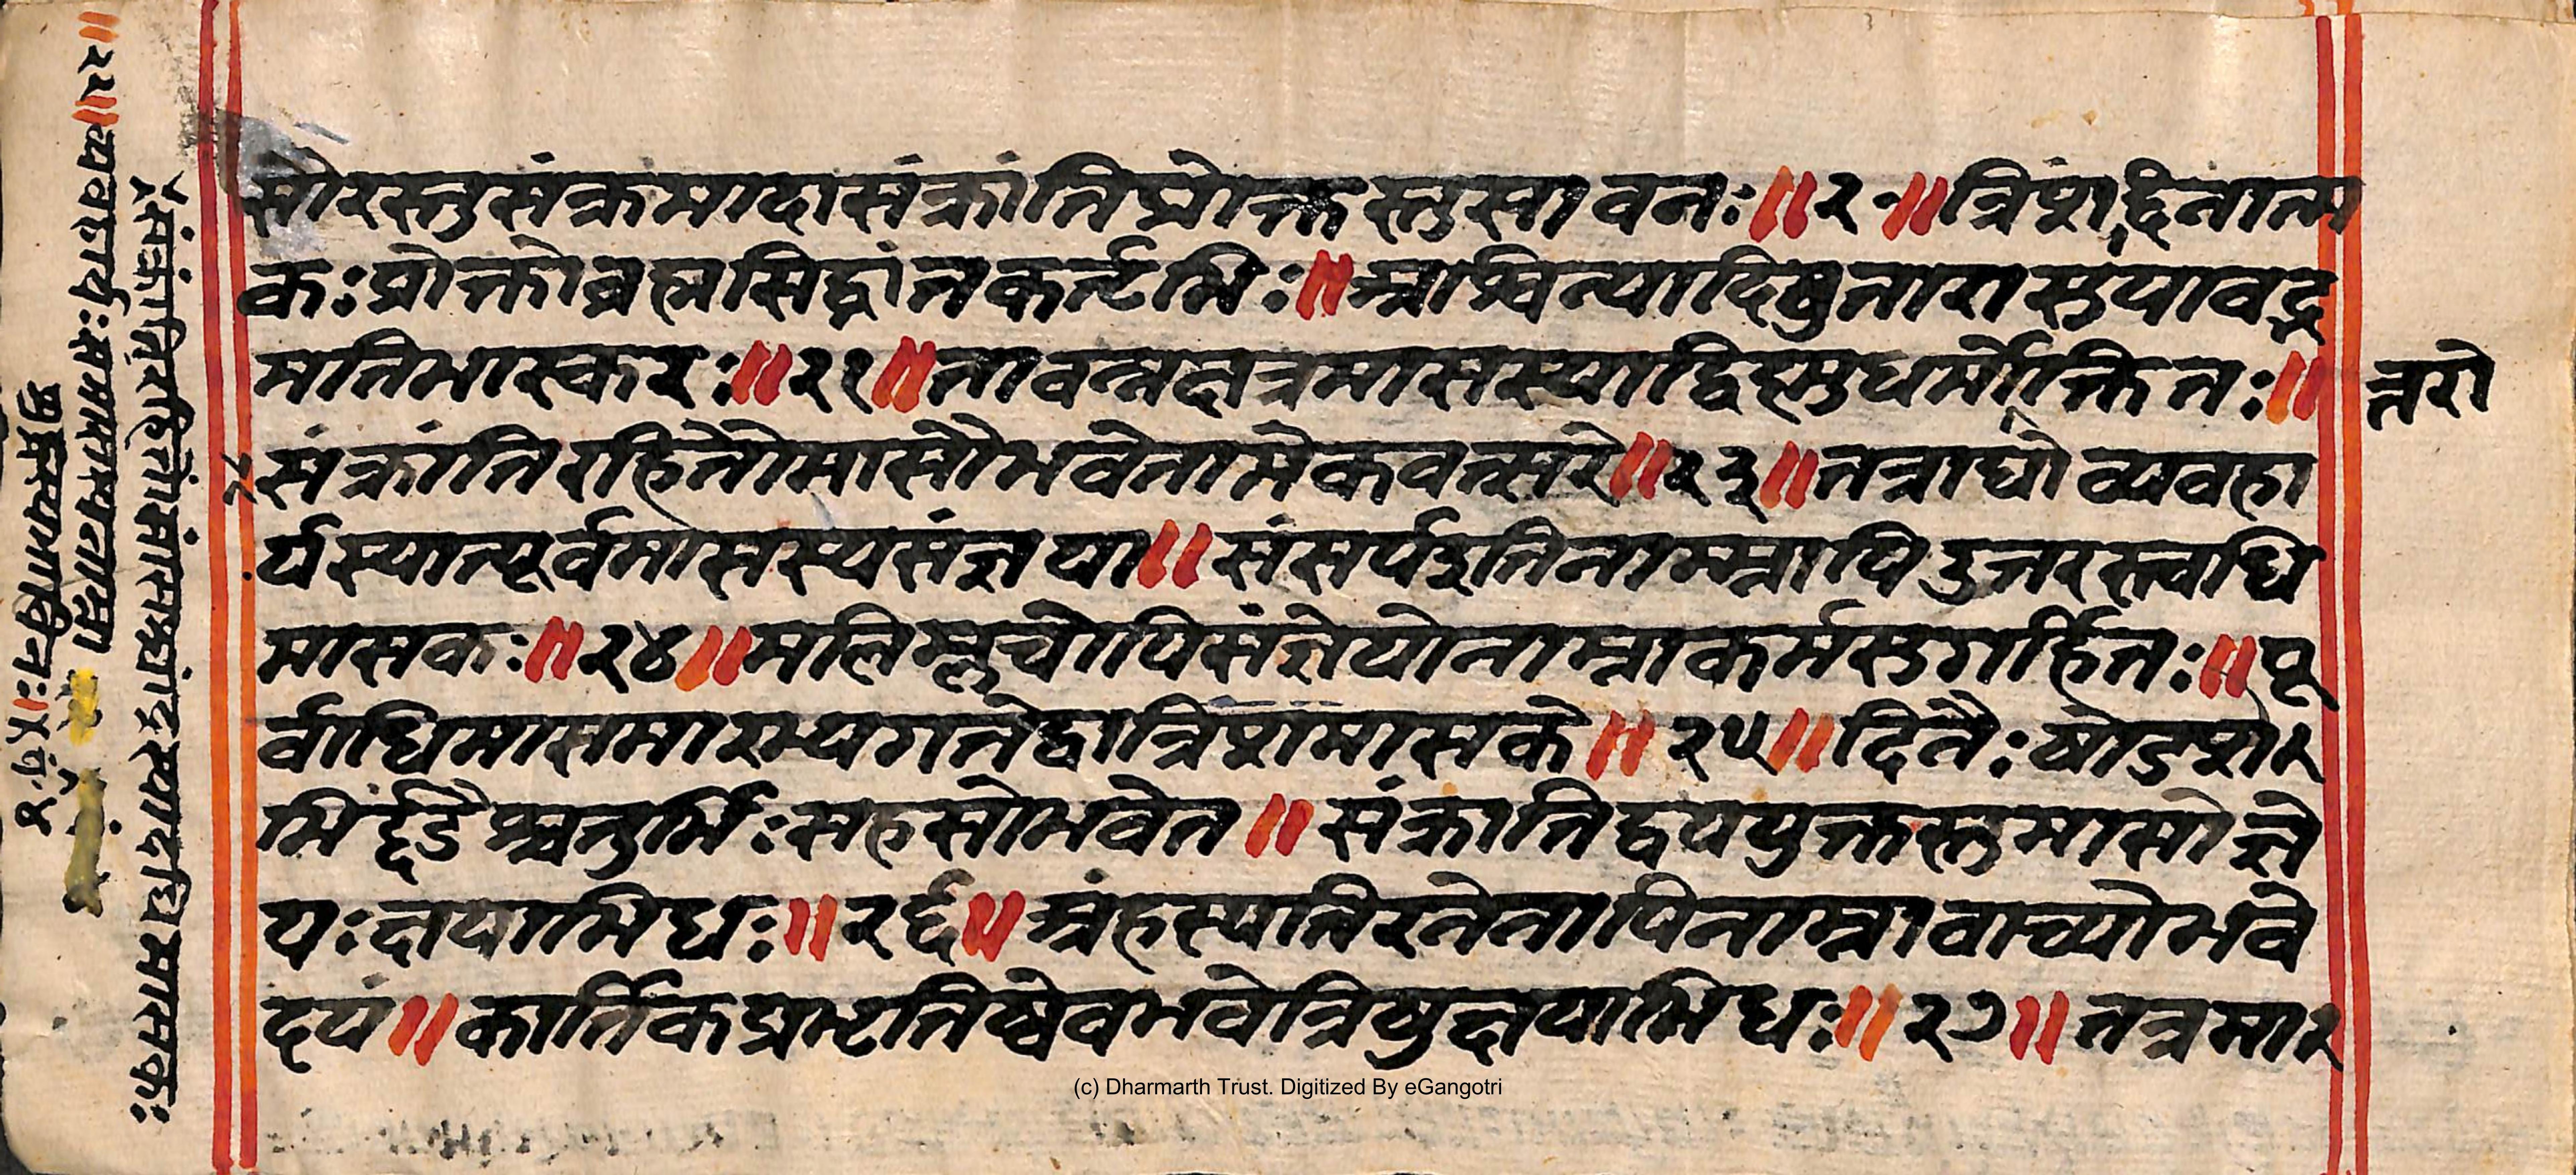 सौरस्तुसंक्रमादासंक्रांतिप्रोक्तस्तुसावनः॥२०॥त्रिंशद्दिनात्म
कः प्रोक्तोब्रह्मसिद्धांतकर्तृभिः॥आश्विन्यादिषुतारासुयावद्भ्र
मतिभास्करः॥२१॥तावन्नक्षत्रमासस्याद्विहस्तुधर्मोक्तितः॥
संक्रांतिरहितोमासोभवेतामेकवत्सरे॥२३॥तत्राद्योव्यवहा
र्यस्यात्पूर्वमासस्यसंज्ञया॥संसर्पइतिनाम्नापिउत्तरस्त्वधि
मासकः॥२४॥मलिम्लुचोपिसंज्ञेयोनाम्नाकर्मसुगर्हितः॥पू
र्वाधिमासमारभ्यगतेद्वात्रिंशमासके॥२५॥दिनैः षोडशे
भिर्दंडैश्चतुर्भिः सहसोभवेत॥संक्रांतिद्वययुक्तस्तुमासोज्ञे
यः क्षयाभिधः॥२६॥अंहस्पतिरनेनापिनाम्नावाच्योभवे
दयं॥कार्तिकप्रभृतिष्वेवभवेत्रिषुक्षयाभिधः॥२७॥तत्रमार
त्तरो
संक्रांतिरहितोमासश्चांद्रस्यादधिमासकः
॥२२॥व्यवहार्यः
(c) Dharmarth Trust. Digitized By eGangotri